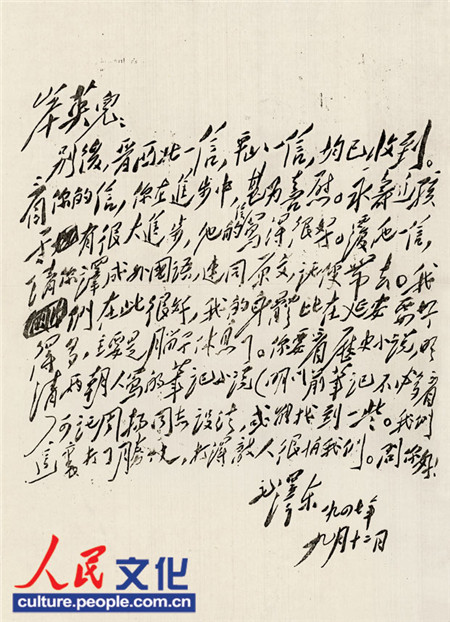 岸英兒：
別後，晉西北一信，平山一信，均已收到。
看你的信，你在進步中，甚為喜慰。永壽這孩
子有很大進步，他的信寫得很好。復他一信，
請你譯成外國語，連同原文，託便帶去。我
們在此很好，我的身體比在延安要好
得多，主要是腦子休息了。你要看歷史小說，明
清兩朝人寫的筆記小說（明以前筆記不必多看），
可託周揚同志設法，或能找到一些。我們
這裏打了勝仗，打得敵人很怕我們。問你好！
毛澤東
一九四七年
九月十二日
人民文化
culture.people.com.cn